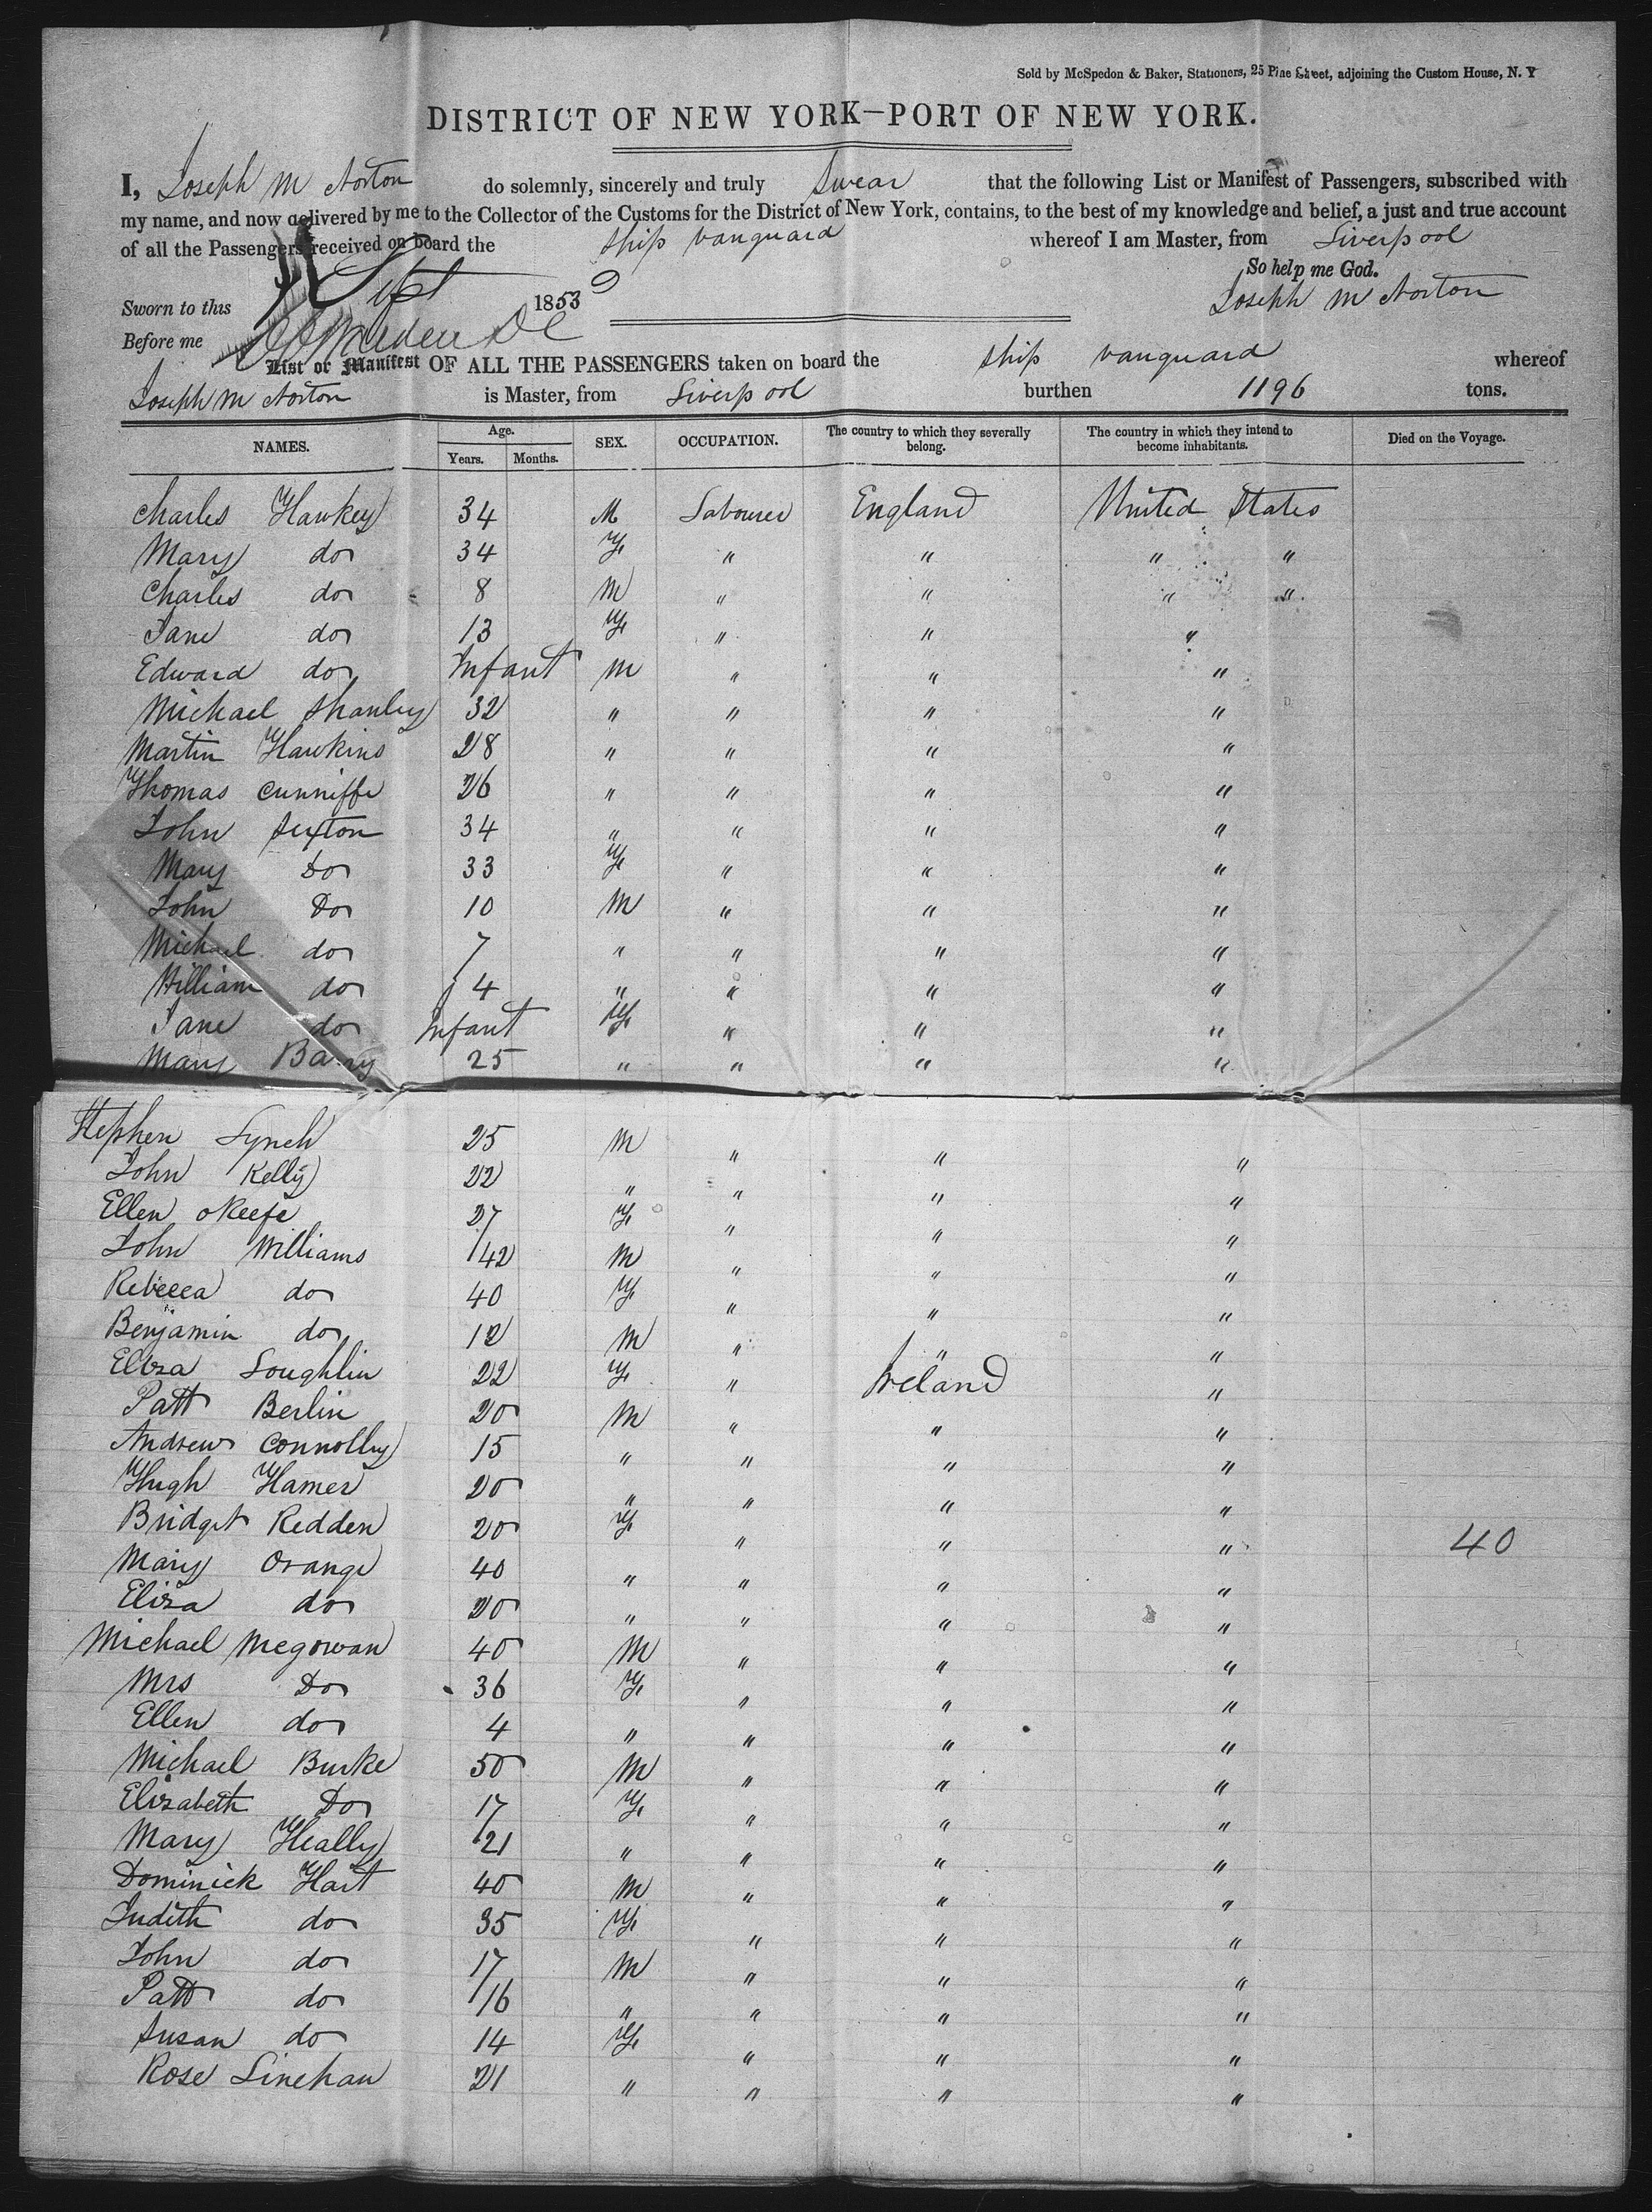 Sold by McSpedon & Baker, Stationers, 25 Pine Street, adjoining the Custom House, N. Y
DISTRICT OF NEW YORK—PORT OF NEW YORK.
I, Joseph M Norton do solemnly, sincerely and truly Swear that the following List or Manifest of Passengers, subscribed with
my name, and now delivered by me to the Collector of the Customs for the District of New York, contains, to the best of my knowledge and belief, a just and true account
of all the Passengers received on board the Ship Vanguard whereof I am Master, from Liverpool
So help me God.
Sworn to this Sept 1853
Joseph M Norton
Before me
List or Manifest OF ALL THE PASSENGERS taken on board the Ship Vanguard whereof
Joseph M Norton is Master, from Liverpool burthen 1196 tons.
NAMES. Age. Years. Months. SEX. OCCUPATION. The country to which they severally belong. The country in which they intend to become inhabitants. Died on the Voyage.
Charles Hawkey 34 M Labourer England United States
Mary do 34 F " " " "
Charles do 8 M " " " "
Jane do 13 F " " "
Edward do Infant M " " "
Michael Shanley 32 " " " "
Martin Hawkins 28 " " " "
Thomas Cunniffe 26 " " " "
John Sexton 34 " " " "
Mary Do 33 F " " "
John Do 10 M " " "
Michael do 7 " " " "
William do 4 " " " "
Jane do Infant F " " "
Mary Barry 25 " " " "
Stephen Lynch 25 M " " "
John Kelly 22 " " " "
Ellen oKeefe 27 F " " "
John Williams 42 M " " "
Rebecca do 40 F " " "
Benjamin do 12 M " " "
Eliza Loughlin 22 F " Ireland "
Patt Berlin 20 M " " "
Andrew Connolly 15 " " " "
Hugh Hamer 20 " " " "
Bridget Redden 20 F " " " 40
Mary Orange 40 " " " "
Eliza do 20 " " " "
Michael McGowan 40 M " " "
Mrs Do 36 F " " "
Ellen do 4 " " " "
Michael Burke 50 M " " "
Elizabeth Do 17 F " " "
Mary Heally 21 " " " "
Dominick Hart 40 M " " "
Judith do 35 F " " "
John do 17 M " " "
Patt do 16 " " " "
Susan do 14 F " " "
Rose Linehan 21 " " " "